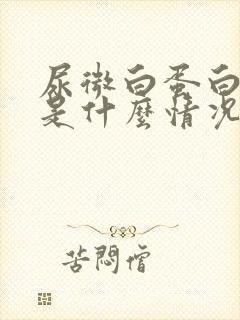 尿微白蛋白
是什麼情況
苦悶僧